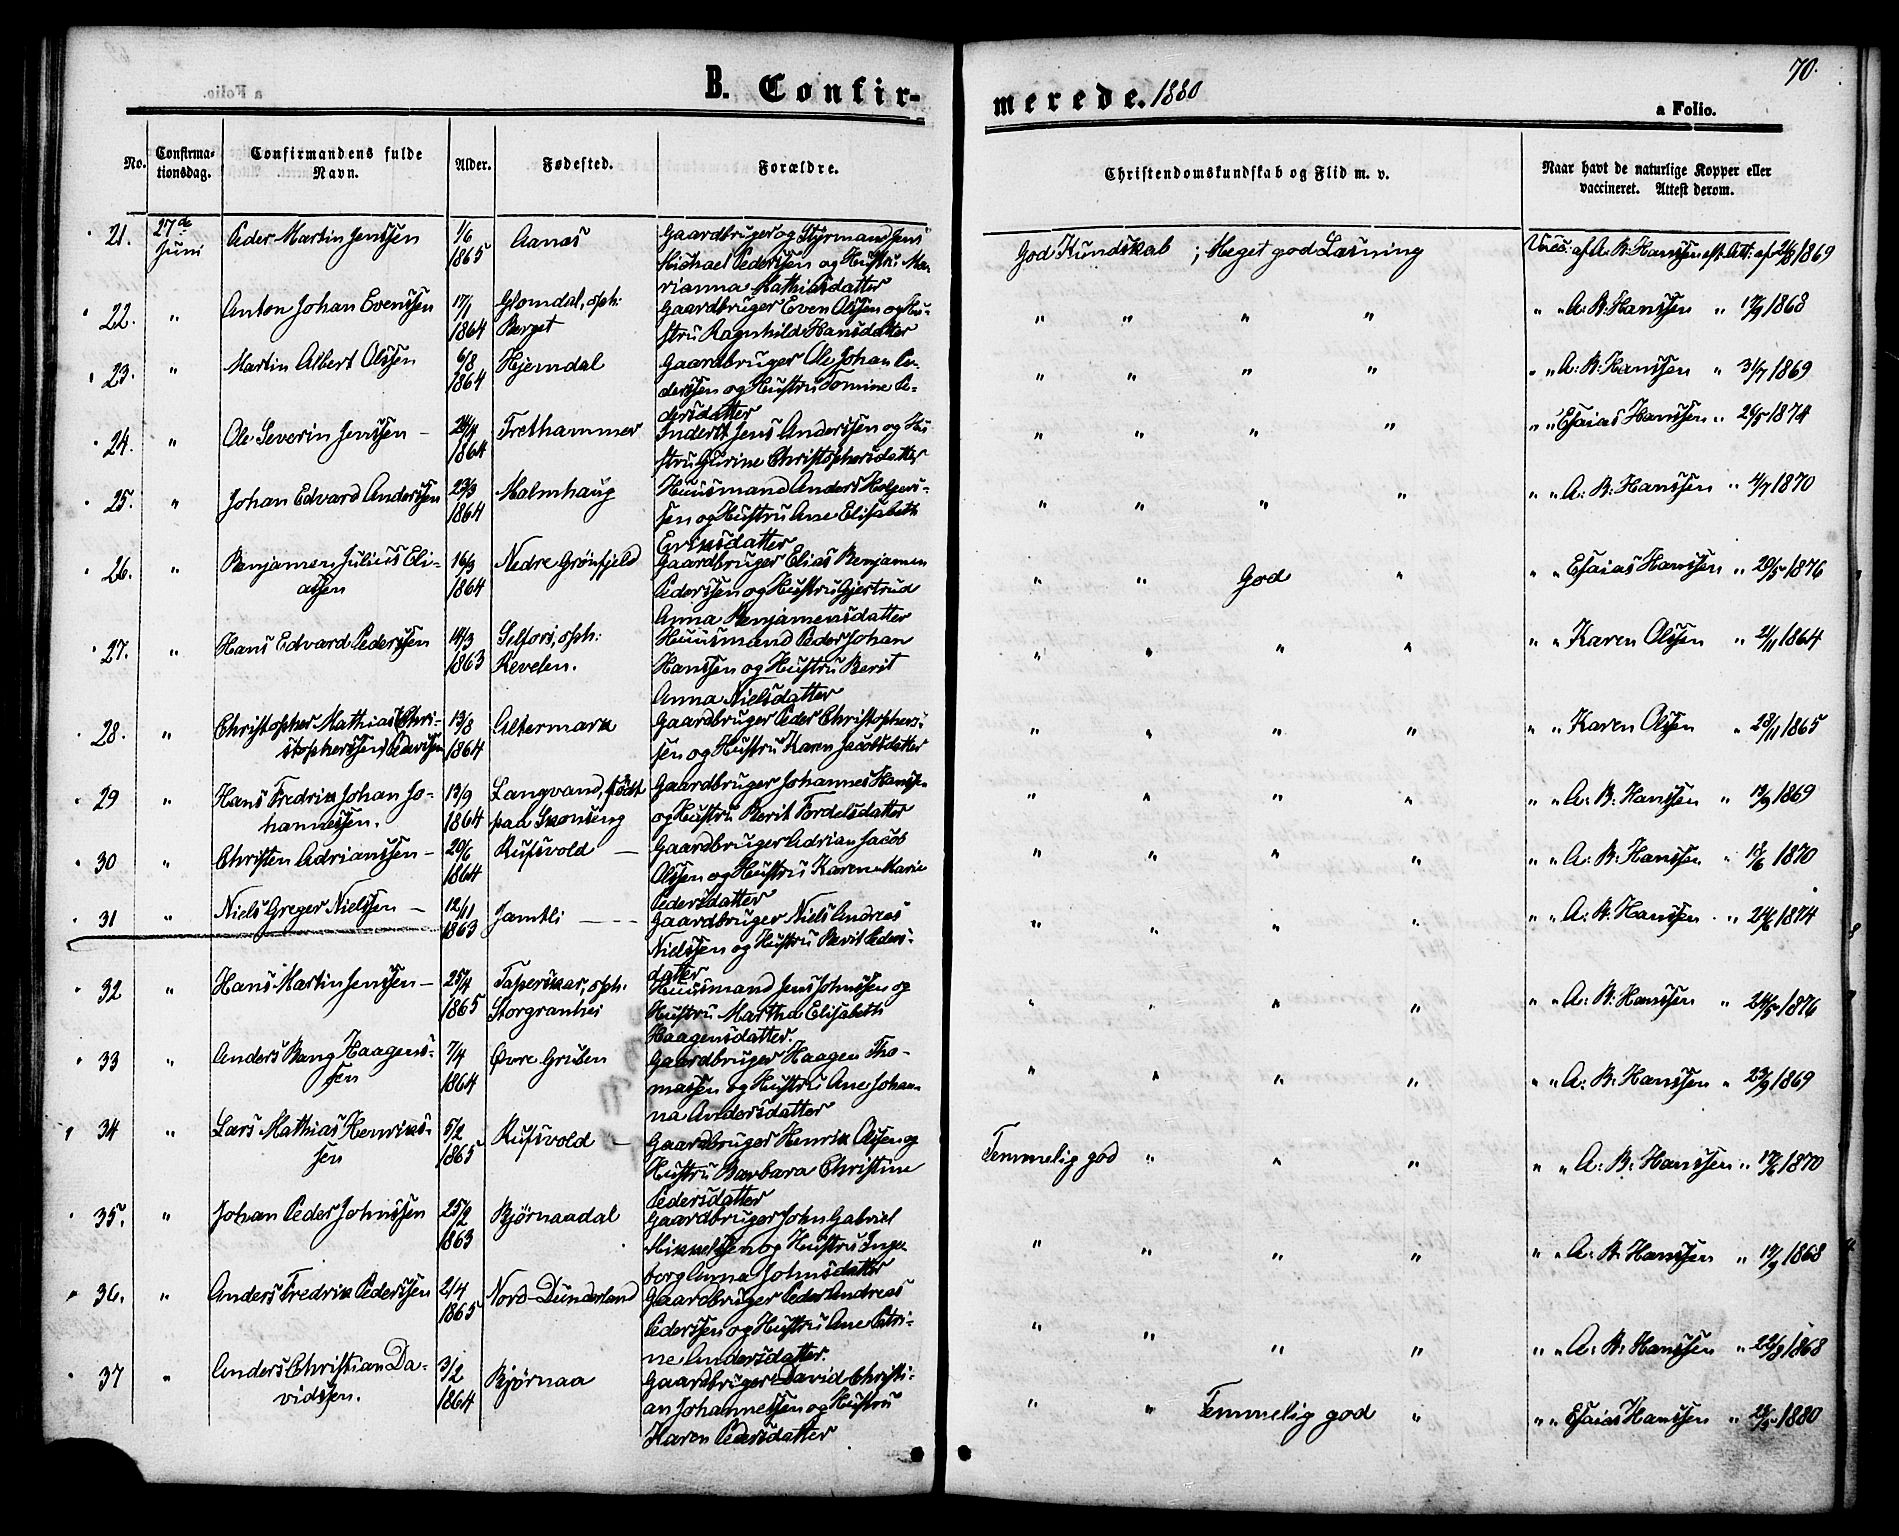 70.
B. Confirmerede. 1880
a Folio.
No. Confirmationsdag. Confirmandens fulde Navn. Alder. Fødested. Forældre. Christendomskundskab og Flid m. v. Naar havt de naturlige Kopper eller vaccineret. Attest derom.
21. 27de Juni Peder Martin Jenssen 1/6 1865 Aanæs Gaardbruger og Styrmand Jens
Michael Pederssen og Hustru Ma-
rianna Mathiasdatter
God Kundskab ; Meget god Læsning Vacc: af A. B. Hanssen eft. Att. af 2/8 1869
22. " Anton Johan Evenssen 17/1 1864 Glomdal, oph: Berget Gaardbruger Even Olssen og Hu-
stru Ragnhilde Hansdatter
" " " " " " A: B: Hanssen " 17/9 1868
23. " Martin Albert Olssen 6/8 1864 Hjemdal Gaardbruger Ole Johan Pe-
derssen og Hustru Tomine Pe-
dersdatter
" " " " " " A: B: Hanssen " 31/7 1869
24. " Ole Severin Jenssen 24/4 1864 Trethammer Inderst Jens Anderssen og Hu
stru Gurine Christophersdatter
" " " " " " Esaias Hanssen " 26/5 1874
25. " Johan Edvard Anderssen 23/3 1864 Malmhaug Huusmand Anders Holgers-
sen og Hustru Ane Elisabeth
Eriksdatter
" " " " " " A: B: Hanssen " 4/7 1870
26. " Benjamen Julius Eli-
assen
16/3 1864 Nedre Grønfjeld Gaardbruger Elias Benjamen
Pederssen og Hustru Gjertrud
Anna Benjamensdatter
" " God " " " Esaias Hanssen " 29/5 1876
27. " Hans Edvard Pederssen 14/3 1863 Selfors, oph: Revelen. Huusmand Peder Johan
Hanssen og Hustru Berit
Anna Nielsdatter
" " " " " " Karen Olssen " 2/11 1864
28. " Christopher Mathias Chri-
stopherssen Pederssen
13/8 1864 Altermark Gaardbruger Peder Christophers-
sen og Hustru Karen Jacobsdatter
" " " " " " Karen Olssen " 28/11 1865
29 " Hans Fredrik Johan Jo-
hannessen.
13/9 1864 Langvand, født paa Skonseng Gaardbruger Johannes Hanssen
og Hustru Berit Fordelsdatter
" " " " " " A: B: Hanssen " 17/9 1869
30 " Christen Adrianssen 29/6 1864 Rufsvold Gaardbruger Adrian Jacob
Olssen og Hustru Karen Marie
Pedersdatter
" " " " " " A: B: Hanssen " 17/6 1870
31 " Niels Greger Nielssen 12/11 1863 Jamtli Gaardbruger Niels Andreas
Nielssen og Hustru Berit Peders-
datter
" " " " " " A: B: Hanssen " 24/6 1874
32 " Hans Martin Jenssen 25/4 1865 Taperskar, oph. Storgranhei Huusmand Jens Johnssen og
Hustru Martha Elisabeth
Haagensdatter.
" " " " " " A: B: Hanssen " 24/5 1876
33 " Anders Bang Haagens-
sen
7/4 1864 Øvre Gruben Gaardbruger Haagen Tho-
massen og Hustru Ane Johan
na Andersdatter
" " " " " " A: B: Hanssen " 23/9 1869
34 " Lars Mathias Henriks-
sen
5/2 1865 Rufsvold Gaardbruger Henrik Olssen og
Hustru Barbara Christine
Pedersdatter
Temmelig god " " " " " A: B: Hanssen " 17/6 1870
35. " Johan Peder Johnssen 25/2 1863 Bjørnaadal Gaardbruger John Gabriel
Mikkelssen og Hustru Inge-
borg Anna Johnsdatter
" " " " " " A: B: Hanssen " 17/9 1868
36. " Anders Fredrik Pederssen 2/4 1865 Nord-Dunderland Gaardbruger Peder Andreas
Pederssen og Hustru Ane Petri-
ne Andersdatter.
" " " " " " A: B: Hanssen " 22/8 1868
37 " Anders Christian Da-
vidssen.
3/2 1864 Bjørnaa Gaardbruger David Christi-
an Johannessen og Hustru
Karen Pedersdatter
" " Temmelig god " " " Esaias Hanssen " 23/5 1880